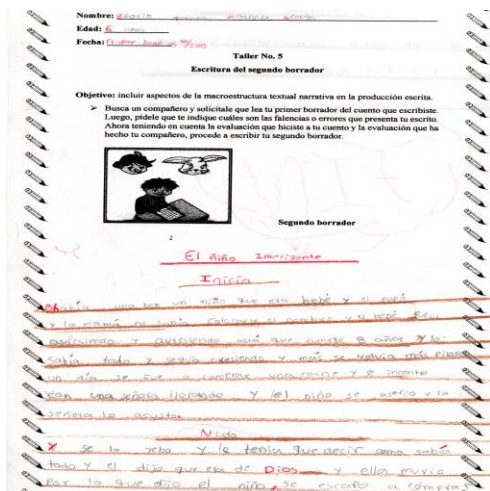 Nombre:
Edad: 6 años
Fecha:
Taller No. 5
Escritura del segundo borrador
Objetivo: incluir aspectos de la macroestructura textual narrativa en la producción escrita.
➤ Busca un compañero y solicítale que lea tu primer borrador del cuento que escribiste.
Luego, pídele que te indique cuáles son las falencias o errores que presenta tu escrito.
Ahora teniendo en cuenta la evaluación que hiciste a tu cuento y la evaluación que ha
hecho tu compañero, procede a escribir tu segundo borrador.
Segundo borrador
El niño
Inicio
había una bes un niño que era bebé y el papá
y la mamá no sabía colocarle el nombre y el bebé
que cumple 8 años y lo
sabía todo y seguía creciendo y mas se volvía más
un día se fue a comprar una carne y se
con una señora llorando y el niño se aserco y la
señora lo asusto.
Nudo
y le tenía que decir como sabía
todo y el dijo que era de Dios y ella murio
Por lo que dijo el niño, se escapo a comprar